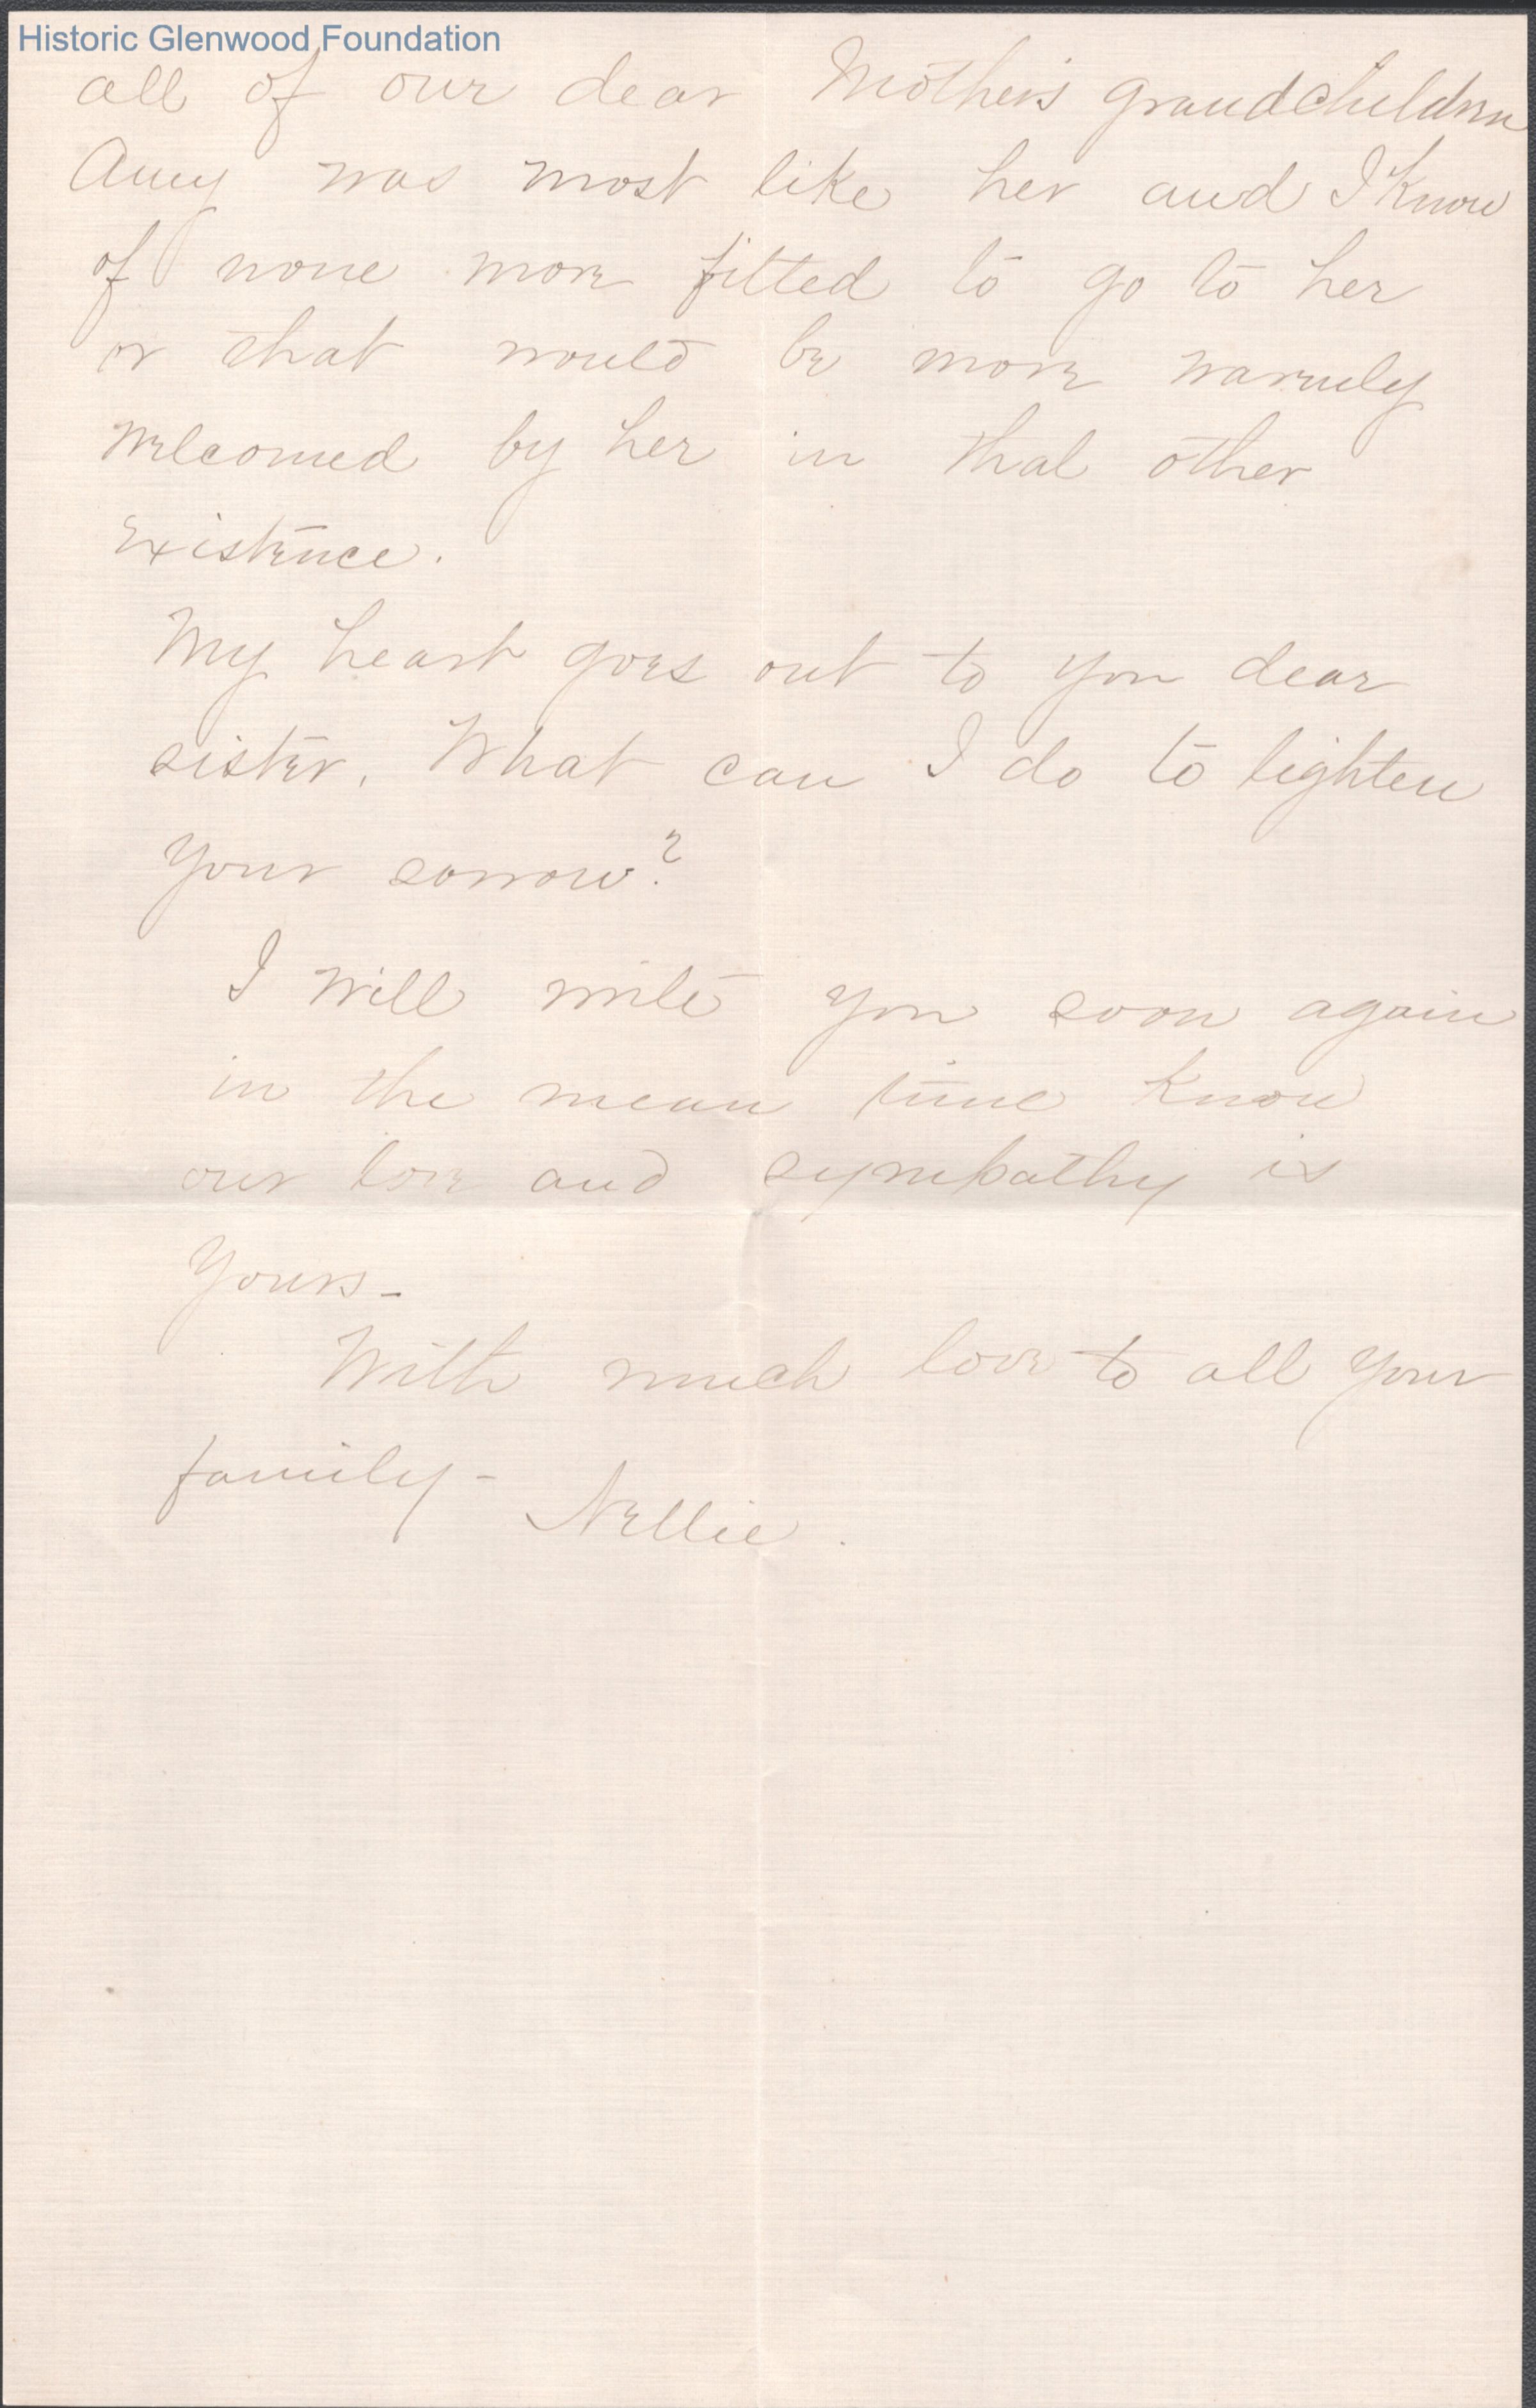 Historic Glenwood Foundation
all of our dear Mother's grandchildren
Amy was most like her and I know
of none more fitted to go to her
or that would be more warmly
welcomed by her in that other
existence.
My heart goes out to you dear
sister. What can I do to lighten
your sorrow?
I will write you soon again
in the mean time know
our love and sympathy is
yours -
With much love to all your
family -
Nellie.